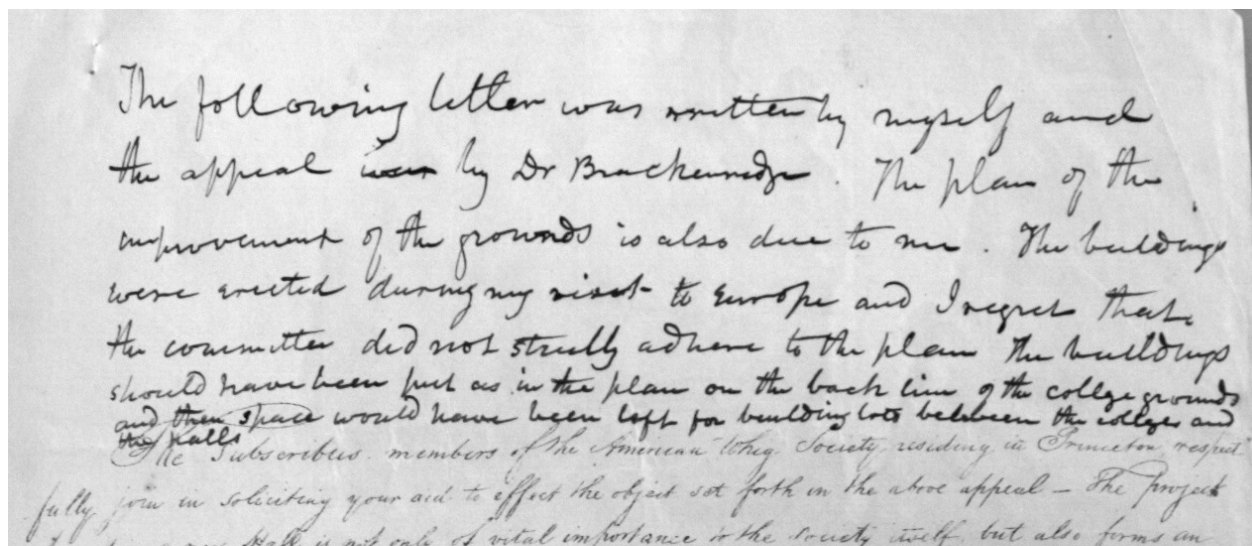 The following letter was written by myself and
the appeal was by Dr Brackenridge. The plan of the
improvement of the grounds is also due to me. The buildings
were erected during my visit to Europe and I regret that
the committee did not strictly adhere to the plan The buildings
should have been put as in the plan on the back line of the college grounds
and then space would have been left for building lots between the colleges and
the Halls
The Subscribers members of the American Whig Society residing in Princeton respect-
fully join in soliciting your aid to effect the object set forth in the above appeal – The project
new Hall is not only of vital importance to the Society itself, but also forms an